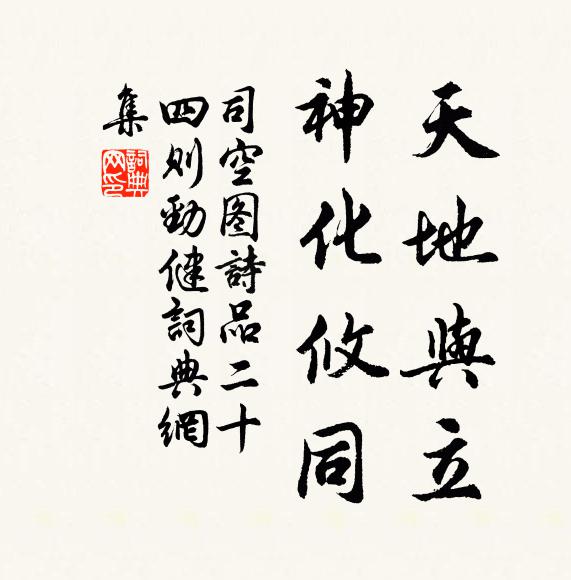 天地與立
神化攸同
司空图詩品二十
四则勁健詞典網
集
詞典
网印